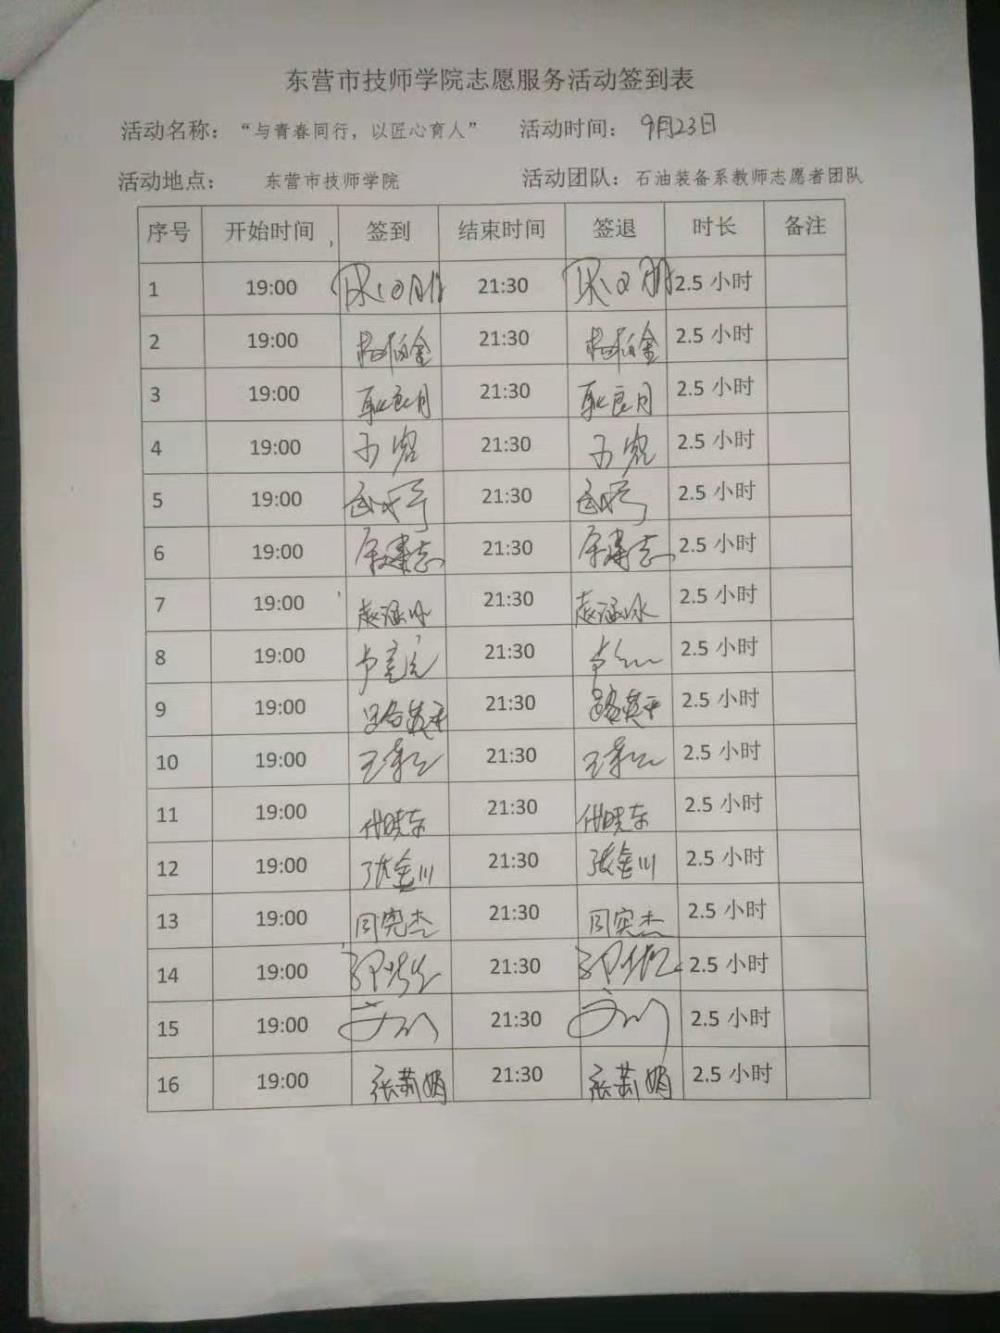 东营市技师学院志愿服务活动签到表
活动名称：“与青春同行，以匠心育人” 活动时间： 9月23日
活动地点： 东营市技师学院 活动团队：石油装备系教师志愿者团队
序号 开始时间 签到 结束时间 签退 时长 备注
1 19:00 21:30 2.5 小时
2 19:00 21:30 2.5 小时
3 19:00 耿良月 21:30 耿良月 2.5 小时
4 19:00 21:30 2.5 小时
5 19:00 21:30 2.5 小时
6 19:00 21:30 2.5 小时
7 19:00 赵涵冰 21:30 赵涵冰 2.5 小时
8 19:00 21:30 2.5 小时
9 19:00 路英平 21:30 路英平 2.5 小时
10 19:00 21:30 2.5 小时
11 19:00 付晓东 21:30 付晓东 2.5 小时
12 19:00 张金川 21:30 张金川 2.5 小时
13 19:00 闫宪杰 21:30 闫宪杰 2.5 小时
14 19:00 21:30 2.5 小时
15 19:00 21:30 2.5 小时
16 19:00 张莉娟 21:30 张莉娟 2.5 小时